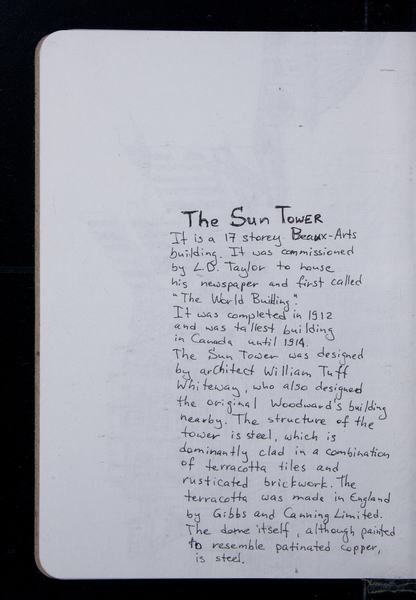 The Sun Tower
It is a 17 storey Beaux-Arts
building. It was commissioned
by L.D. Taylor to house
his newspaper and first called
"The World Building".
It was completed in 1912
and was tallest building
in Canada until 1914.
The Sun Tower was designed
by architect William Tuff
Whiteway, who also designed
the original Woodward's building
nearby. The structure of the
tower is steel, which is
dominantly clad in a combination
of terracotta tiles and
rusticated brickwork. The
terracotta was made in England
by Gibbs and Canning Limited.
The dome itself, although painted
to resemble patinated copper,
is steel.